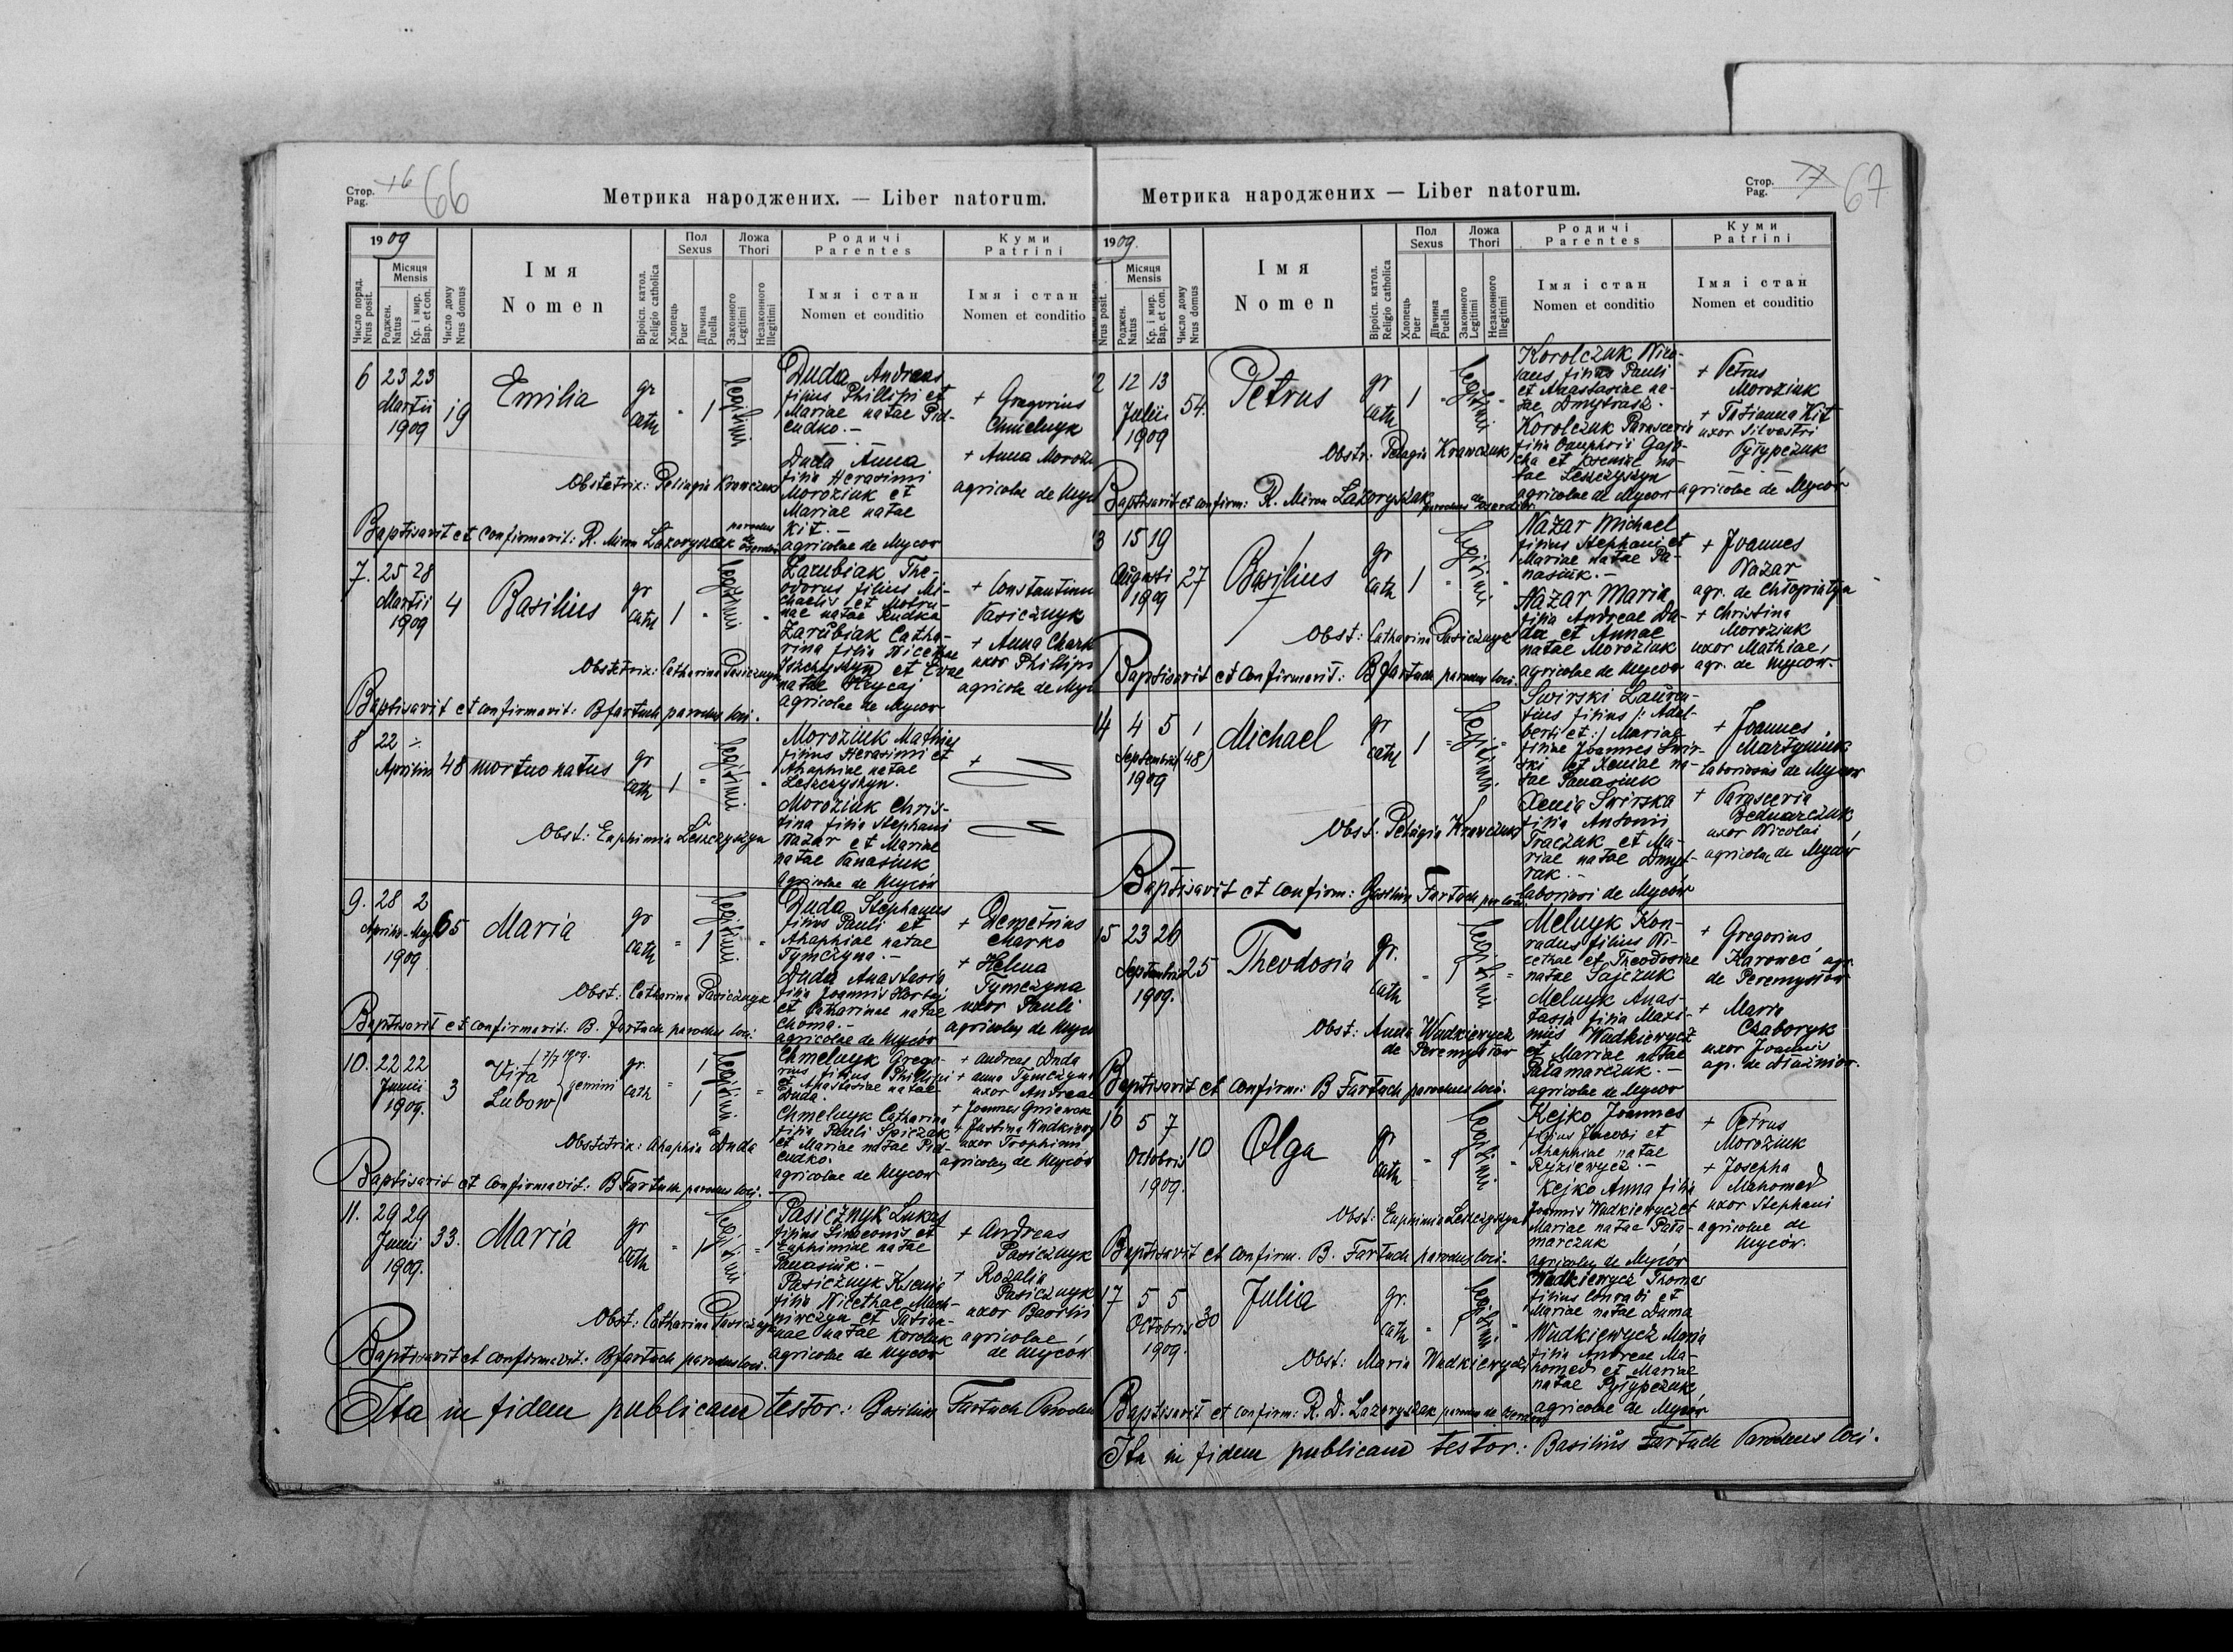 Стор.
Pag.
16
66
Метрика народжених. — Liber natorum.
1909
Число поряд.
Nrus posit.
Місяця
Mensis
Роджен.
Natus
Кр. і мир.
Bap. et con.
Число дому
Nrus domus
Імя
Nomen
Віроісп. катол.
Religio catholica
Пол
Sexus
Хлопець
Puer
Дівчина
Puella
Ложа
Thori
Законного
Legitimi
Незаконного
Illegitimi
Родичі
Parentes
Імя і стан
Nomen et conditio
Куми
Patrini
Імя і стан
Nomen et conditio
6
23 23
Martii
1909
19
Emilia
gr
cath
" 1
legitimi
Duda Andreas
filius Phillipi et
Mariae natae Pid-
cudko. -
Duda Anna
filia Herasimi
Moroziuk et
Mariae natae
Kit. -
agricolae de Mycow
+ Gregorius
Chmelnyk
+ Anna
agricolae de
Obstetrix: Pelagia Krawczuk
Baptisavit et confirmavit: R. Miron Lazoryszak parochus de
7.
25 28
Martii
1909
4
Basilius
gr
cath
1 "
legitimi
Zarubiak The-
odorus filius Mi-
chaelis et Motru-
nae natae Rudka
Zarubiak Catha-
rina filia Nicethae
et Evae
natae Hrycaj
agricolae de Mycow
+
Pasicznyk
+ Anna
uxor Phillipi
agricolae de
Obstetrix: Catharina Pasicznyk
Baptisavit et confirmavit: B Fartuch parochus loci.
8
22 ÷
Aprilis
48
mortuo natus
gr
cath
1 "
legitimi
Moroziuk Mathias
filius Herasimi et
Ahaphiae natae
Leszczyszyn.
Moroziuk Chris-
tina filia Stephani
Nazar et Mariae
natae Panasiuk
agricolae de Myców
+
Obst: Euphimia Leszczyszyn
9.
28 2
Aprilis - Maji
1909
65
Maria
gr
cath
" 1
legitimi
Duda Stephanus
filius Pauli et
Ahaphiae natae
Tymczyna. -
Duda Anastasia
filia Joannis
et Catharinae natae
Choma. -
agricolae de Myców
+ Demetrius
Charko
+ Helena
Tymczyna
uxor Pauli
agricolae de
Obst: Catharina Pasicznyk
Baptisavit et confirmavit: B. Fartuch parochus loci.
10.
22 22
Junii
1909.
3
Vira
Lubow
gemini
gr.
cath
" 1
1
legitimi
Chmelnyk Grego-
rius filius Phillipi
et Anastasiae natae
Duda.
Chmelnyk Catharina
filia Pauli Spiczak
et Mariae natae Pid-
cudko.
agricolae de Mycow
+ Andreas Duda
+ Anna Tymczyna
uxor Andreae
+ Joannes
+ Justina
uxor Trophimi
agricolae de Myców
Obstetrix: Ahaphia Duda
Baptisavit et confirmavit: B Fartuch parochus loci.
11.
29 29
Junii
1909.
33.
Maria
gr
cath
" 1
legitimi
Pasicznyk Lukas
filius Simeonis et
Euphimiae natae
Panasiuk. -
Pasicznyk Ksenia
filia Nicethae
et Tatian-
nae natae
agricolae de Mycow
+ Andreas
Pasicznyk
+ Rozalia
Pasicznyk
uxor Basilii
agricolae
de Myców
Obst: Catharina Pasicznyk
Baptisavit et confirmavit: B Fartuch parochus loci.
Ita in fidem publicam testor: Basilius Fartuch
Метрика народжених — Liber natorum.
Стор.
Pag.
77
67
1909.
Nrus posit.
Місяця
Mensis
Роджен.
Natus
Кр. і мир.
Bap. et con.
Число дому
Nrus domus
Імя
Nomen
Віроісп. катол.
Religio catholica
Пол
Sexus
Хлопець
Puer
Дівчина
Puella
Ложа
Thori
Законного
Legitimi
Незаконного
Illegitimi
Родичі
Parentes
Імя і стан
Nomen et conditio
Куми
Patrini
Імя і стан
Nomen et conditio
2
12 13
Julii
1909
54.
Petrus
gr
cath
1 "
legitimi
Korolczuk Nico-
laus filius Pauli
et Anastasiae na-
tae Dmytrasz.
Korolczuk Parasceria
filia Onuphrii
et Xeniae na-
tae Leszczyszyn
agricolae de Mycow
+ Petrus
Moroziuk
+ Tatianna Kit
uxor Silvestri
Pyłypczuk
agricolae de Mycow
Obstr. Pelagia Krawczuk
Baptisavit et confirm: R. Miron Lazoryszak parochus de
3
15 19
Augusti
1909
27
Basilius
gr
cath
1 "
legitimi
Nazar Michael
filius Stephani et
Mariae natae Pa-
nasiuk. -
Nazar Maria
filia Andreae Du-
da et Annae
natae Moroziuk
agricolae de Mycow
+ Joannes
Nazar
agr. de
+ Christina
Moroziuk
uxor Mathiae,
agr. de Mycow.
Obst: Catharina Pasicznyk
Baptisavit et confirmavit: B Fartuch parochus loci.
14
4 5
Septembris
1909
1
(48)
Michael
gr
cath
1 "
legitimi
Swirski Lauren-
tius filius /: Adal-
berti et :/ Mariae
filiae Joannes Swir-
ski et Xeniae na-
tae Panasiuk
Xenia Swirska
filia Antonii
Traczuk et Ma-
riae natae Dmyt-
rak. -
laboriosi de Mycow
+ Joannes
Martyniuk
laboriosus de Mycow
+ Parasceria
Bednarczuk
uxor Nicolai
agricolae de Myców
Obst. Pelagia Krawczuk
Baptisavit et confirm: Basilius Fartuch par loci.
15
23 26
Septembris
1909.
25
Theodosia
gr.
cath
" 1
legitimi
Melnyk Kon-
radus filius Ni-
cethae et Theodosiae
natae Sajczuk
Melnyk Anas-
tasia filia Maxi-
mi Wudkiewycz
et Mariae natae
Palamarczuk. -
agricolae de Mycow
+ Gregorius
Karoweć agr.
de Peremysłow
+ Maria
Czaboryk
uxor Joannis
agr. de
Obst: Anna Wudkiewycz
de Peremysłow
Baptisavit et confirm: B Fartuch parochus loci.
16
5 7
Octobris
1909.
10
Olga
gr
cath
" 1
legitimi
Kejko Joannes
filius Jacobi et
Ahaphiae natae
Ryziewycz. -
Kejko Anna filia
Joannis Wudkiewycz et
Mariae natae Pała-
marczuk
agricolae de Mycow
+ Petrus
Moroziuk
+ Josepha
Mahomed
uxor Stephani
agricolae de
Mycow.
Obst: Euphimia Leszczyszyn
Baptisavit et confirm. B. Fartuch parochus loci.
17
5 5
Octobris
1909.
30
Julia
gr.
cath
" 1
legitimi
Wudkiewycz Thomas
filius Conradi et
Mariae natae Duma
Wudkiewycz Maria
filia Andreae Ma-
homed et Mariae
natae Pyłypczuk,
agricolae de Mycow
Obst: Maria Wudkiewycz
Baptisavit et confirm: R. D. Lazoryszak parochus de
Ita in fidem publicam testor: Basilius Fartuch Parochus loci.